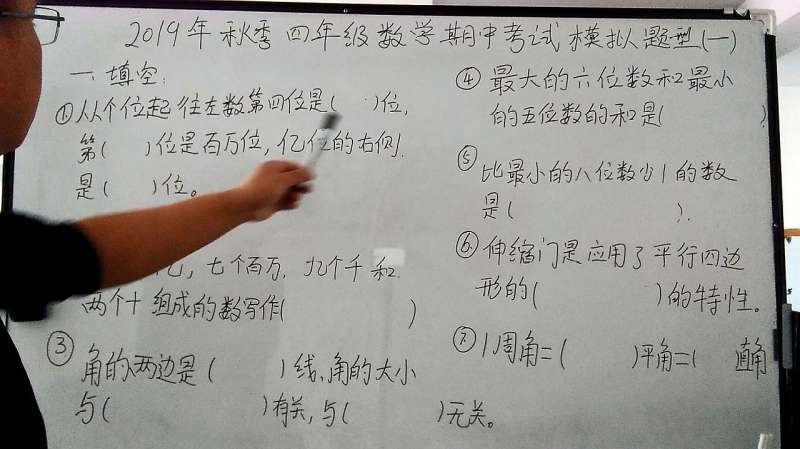 2019年秋季四年级数学期中考试模拟题型(一)
一、填空:
①从个位起往左数第四位是( )位,
第( )位是百万位,亿位的右侧
是( )位。
亿,七个百万,九个千和
两个十组成的数写作( )
③角的两边是( )线,角的大小
与( )有关,与( )无关。
④最大的六位数和最小
的五位数的和是( )
⑤比最小的八位数少1的数
是( ).
⑥伸缩门是应用了平行四边
形的( )的特性。
⑦1周角=( )平角=( )直角